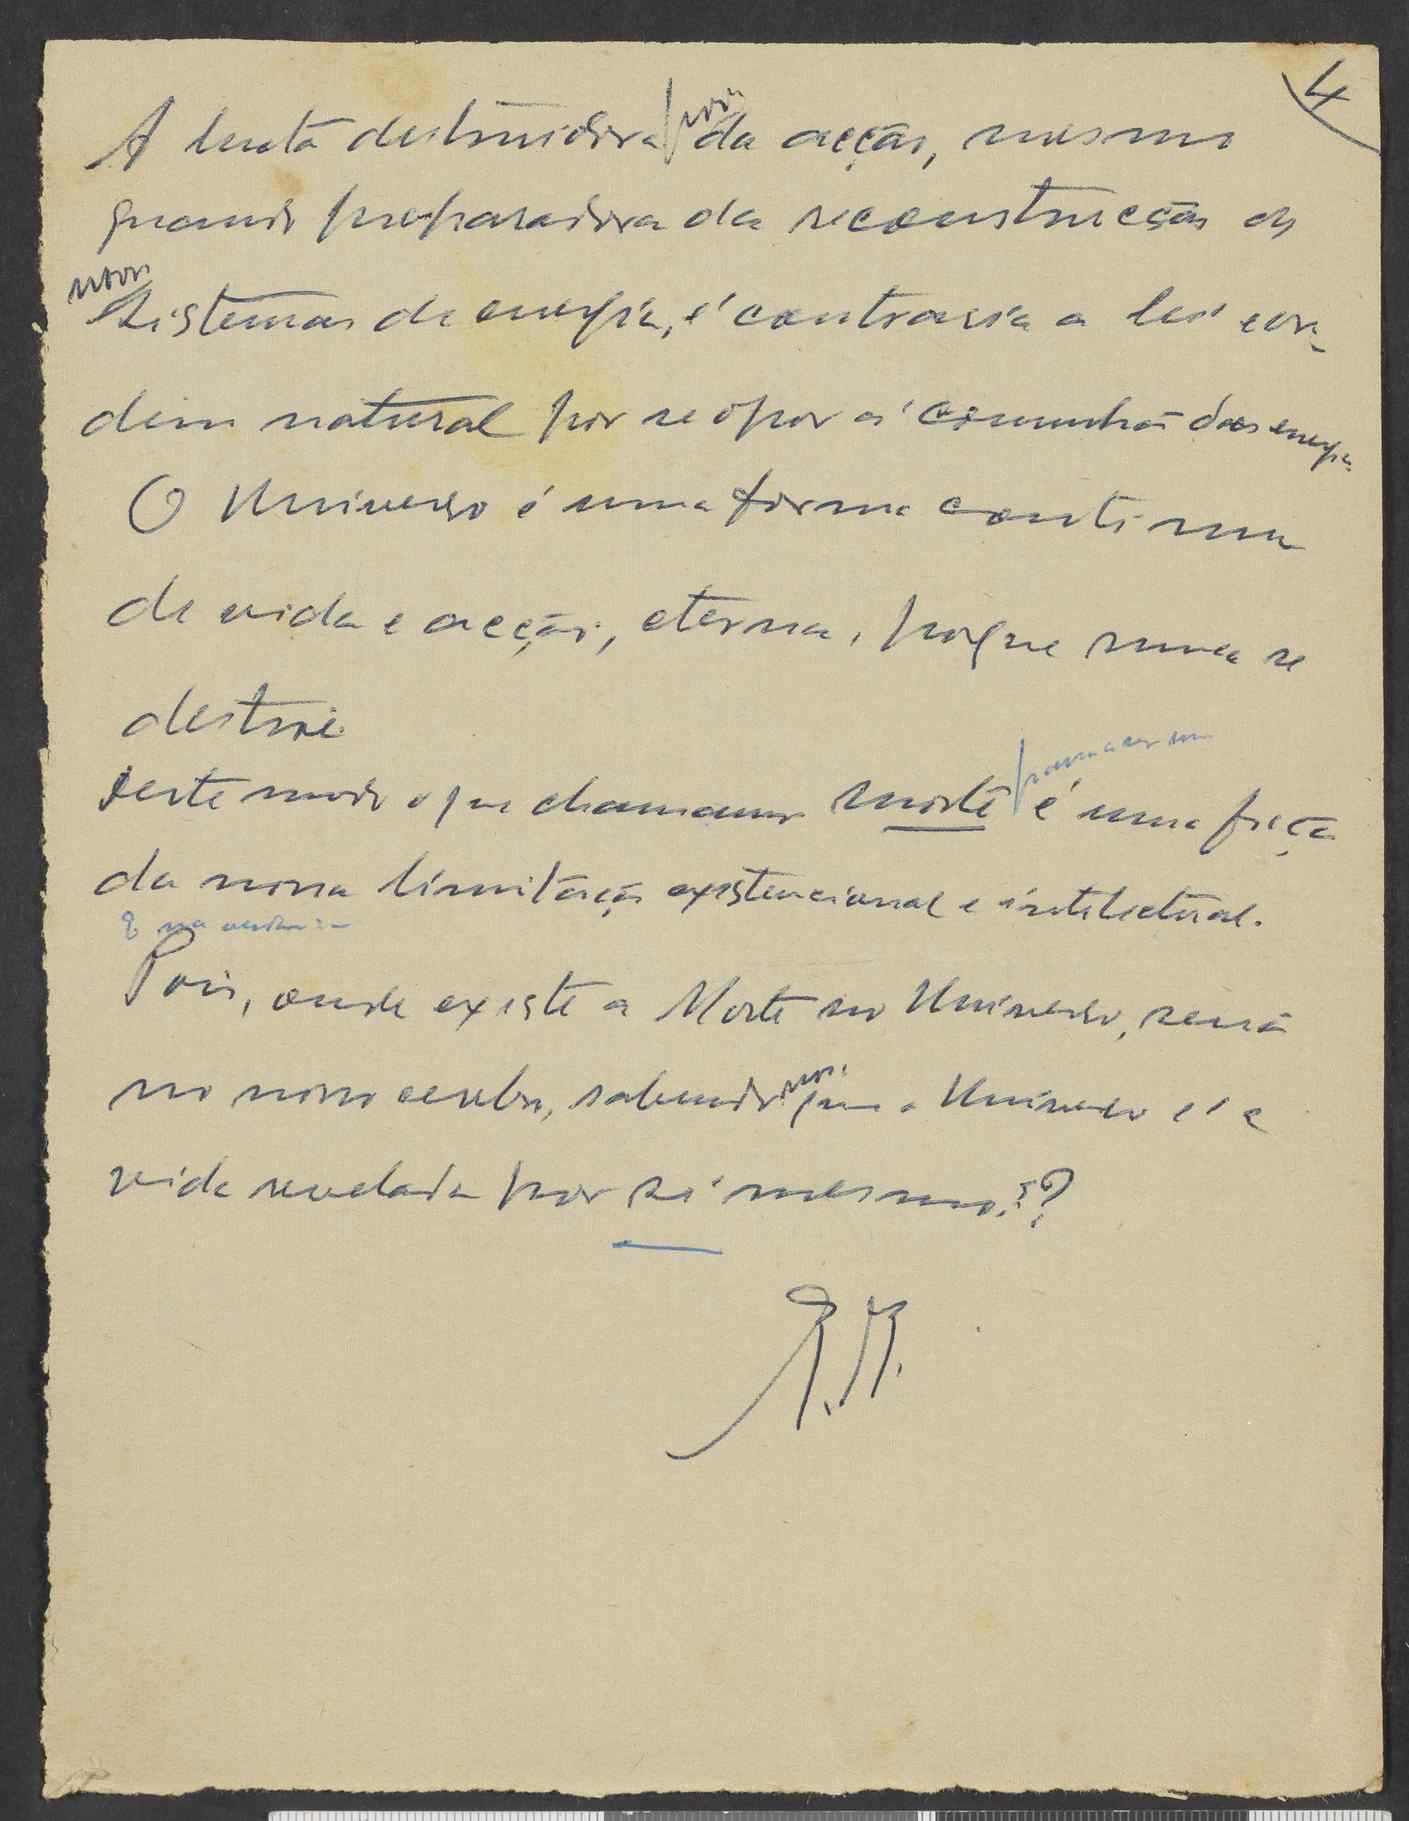 4
A luta destruidora pois da acção, mesmo
quando preparadora da reconstrucção de
novos
sistemas de energia, é contraria a lei e or-
dem natural por se opor á comunhão das energias
O Universo é uma forma continua
de vida e acção, eterna, porque nunca se
destroe.
Deste modo o que chamamos morte é uma ficção
da nossa limitação existencional e intelectual.
E na verdade
Pois, onde existe a Morte no Universo, senão
no nosso cerebro, sabendo nós que o Universo é a
vida revelada por si mesmo!?